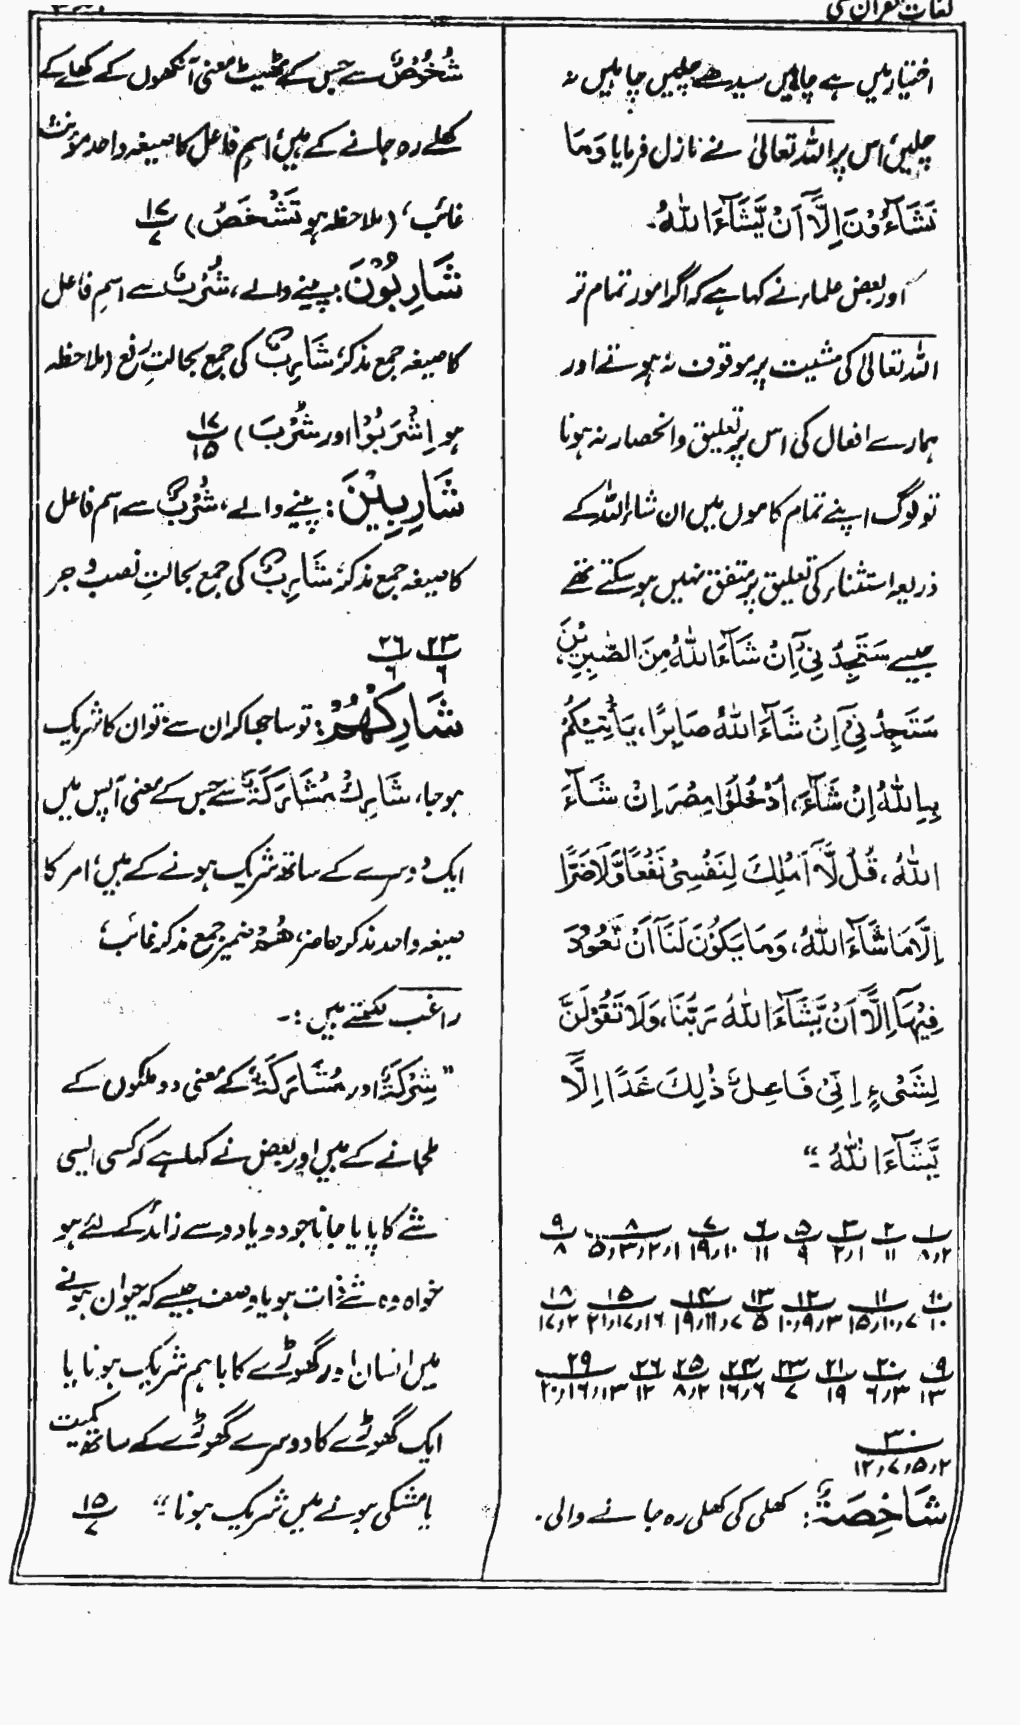 لغات القرآن
اختیار میں ہے چاہیں سیدھے چلیں چاہیں نہ
چلیں، اس پر اللہ تعالیٰ نے نازل فرمایا وَمَا
تَشَآءُوْنَ اِلَّآ اَنْ یَّشَآءَ اللّٰهُ۔
اور بعض علماء نے کہا ہے کہ اگر امور تمام تر
اللہ تعالیٰ کی مشیت پر موقوف نہ ہوتے اور
ہمارے افعال کی اس پر تعلیق و انحصار نہ ہوتا
تو لوگ اپنے تمام کاموں میں ان شاء اللہ کے
ذریعہ استثناء کی تعلیق پر متفق نہیں ہو سکتے تھے
جیسے سَتَجِدُنِیْۤ اِنْ شَآءَ اللّٰهُ مِنَ الصّٰبِرِیْنَ،
سَتَجِدُنِیْۤ اِنْ شَآءَ اللّٰهُ صَابِرًا، یَاْتِیْكُمْ
بِهِ اللّٰهُ اِنْ شَآءَ، اُدْخُلُوْا مِصْرَ اِنْ شَآءَ
اللّٰهُ، قُلْ لَّآ اَمْلِكُ لِنَفْسِیْ نَفْعًا وَّلَا ضَرًّا
اِلَّا مَا شَآءَ اللّٰهُ، وَمَا یَكُوْنُ لَنَآ اَنْ نَّعُوْدَ
فِیْهَآ اِلَّآ اَنْ یَّشَآءَ اللّٰهُ رَبُّنَا، وَلَا تَقُوْلَنَّ
لِشَیْءٍ اِنِّیْ فَاعِلٌ ذٰلِكَ غَدًا اِلَّآ اَنْ
یَّشَآءَ اللّٰهُ۔“
۱ ۲ ۳ ۵ ۶ ۷ ۸ ۹
۸٫۲ ۱۱ ۲٫۱ ۹ ۱۱ ۱۹٫۱۰ ۵٫۳٫۲٫۱ ۸
۱۰ ۱۱ ۱۲ ۱۳ ۱۴ ۱۵ ۱۸
۱۰ ۱۵٫۱۰٫۷ ۱۰٫۹٫۳ ۵ ۱۹٫۱۱٫۷ ۲۱٫۱۷٫۱۶ ۱۷٫۲
۹ ۲۰ ۲۱ ۲۳ ۲۴ ۲۵ ۲۶ ۲۹
۱۳ ۶٫۳ ۱۹ ۷ ۱۶٫۶ ۸٫۲ ۱۲ ۲۰٫۱۶٫۱۳
۳۰
۱۲٫۷٫۵٫۲
شَاخِصَةٌ: کھلی کی کھلی رہ جانے والی۔
شُخُوْصٌ سے جس کے ٹھیٹ معنی آنکھوں کے کھلے کے
کھلے رہ جانے کے ہیں، اسمِ فاعل کا صیغہ واحد مؤنث
غائب، (ملاحظہ ہو تَشْخَصُ) ۱۷
۷
شَارِبُوْنَ: پینے والے، شُرْبٌ سے اسمِ فاعل
کا صیغہ جمع مذکر، شَارِبٌ کی جمع بحالتِ رفع (ملاحظہ
ہو اِشْرَبُوْا اور شُرْبَ) ۲۷
۱۵
شَارِبِیْنَ: پینے والے، شُرْبٌ سے اسم فاعل
کا صیغہ جمع مذکر، شَارِبٌ کی جمع بحالتِ نصب و جر
۲۳ ۲۶
۶ ۶
شَارِكْهُمْ: تو ساجھا کر ان سے، تو ان کا شریک
ہو جا، شَارِكْ مُشَارَكَةٌ سے جس کے معنی آپس میں
ایک دوسرے کے ساتھ شریک ہونے کے ہیں، امر کا
صیغہ واحد مذکر حاضر، هُمْ ضمیر جمع مذکر غائب،
راغب لکھتے ہیں:۔
”شِرْكَةٌ اور مُشَارَكَةٌ کے معنی دو ملکوں کے
مل جانے کے ہیں اور بعض نے کہا ہے کہ کسی ایسی
شے کا پایا جانا جو دو یا دو سے زائد کے لئے ہو
خواہ وہ شے ذات ہو یا وصف جیسے کہ حیوان ہونے
میں انسان اور گھوڑے کا باہم شریک ہونا یا
ایک گھوڑے کا دوسرے گھوڑے کے ساتھ کمیت
یا مشکی ہونے میں شریک ہونا۔“ ۱۵
۷